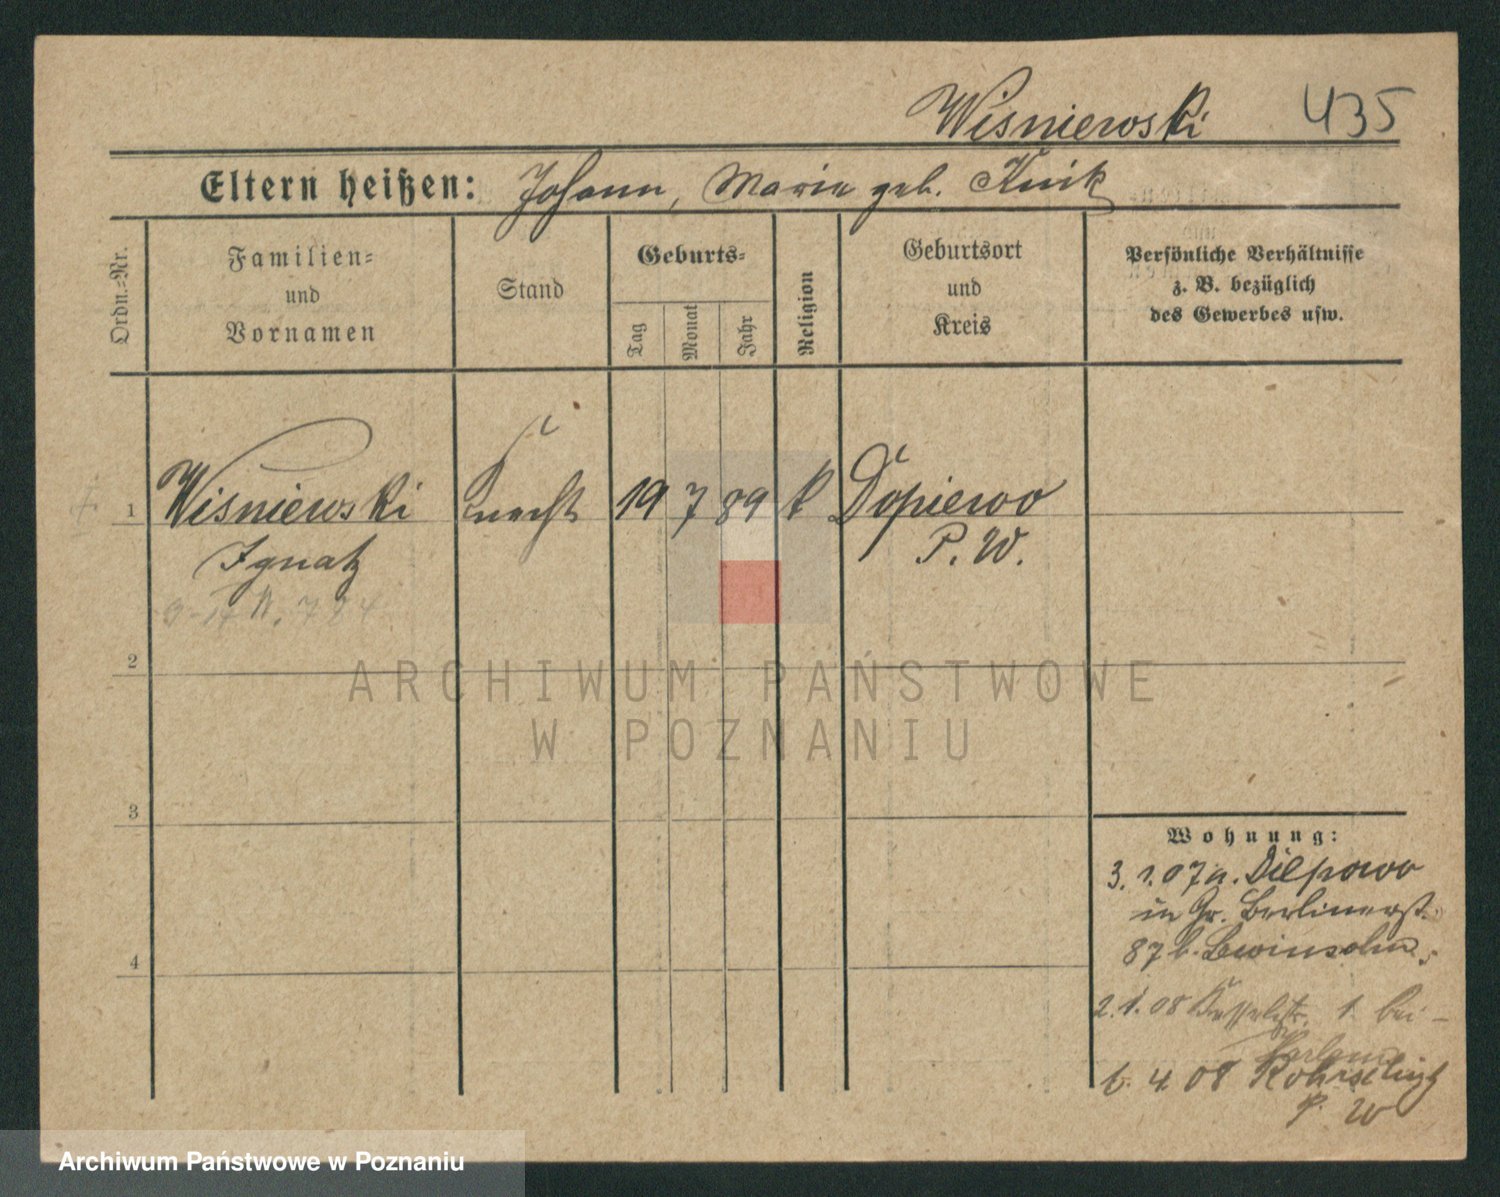 Wisniewski 435
Eltern heißen: Johann, Maria geb. Kuik
Ordn.=Nr.
Familien=
und
Vornamen
Stand
Geburts=
Tag
Monat
Jahr
Religion
Geburtsort
und
Kreis
Persönliche Verhältnisse
z. B. bezüglich
des Gewerbes usw.
1 Wisniewski Knecht 19 7 89 k Dopiewo
Ignatz P. W.
2
ARCHIWUM PAŃSTWOWE
W POZNANIU
3
4
Wohnung:
3. 1. 07 a.
in Gr. Berlinerst.
87 b.
2. 1. 08 1. bei
6. 4. 08
P. W
Archiwum Państwowe w Poznaniu